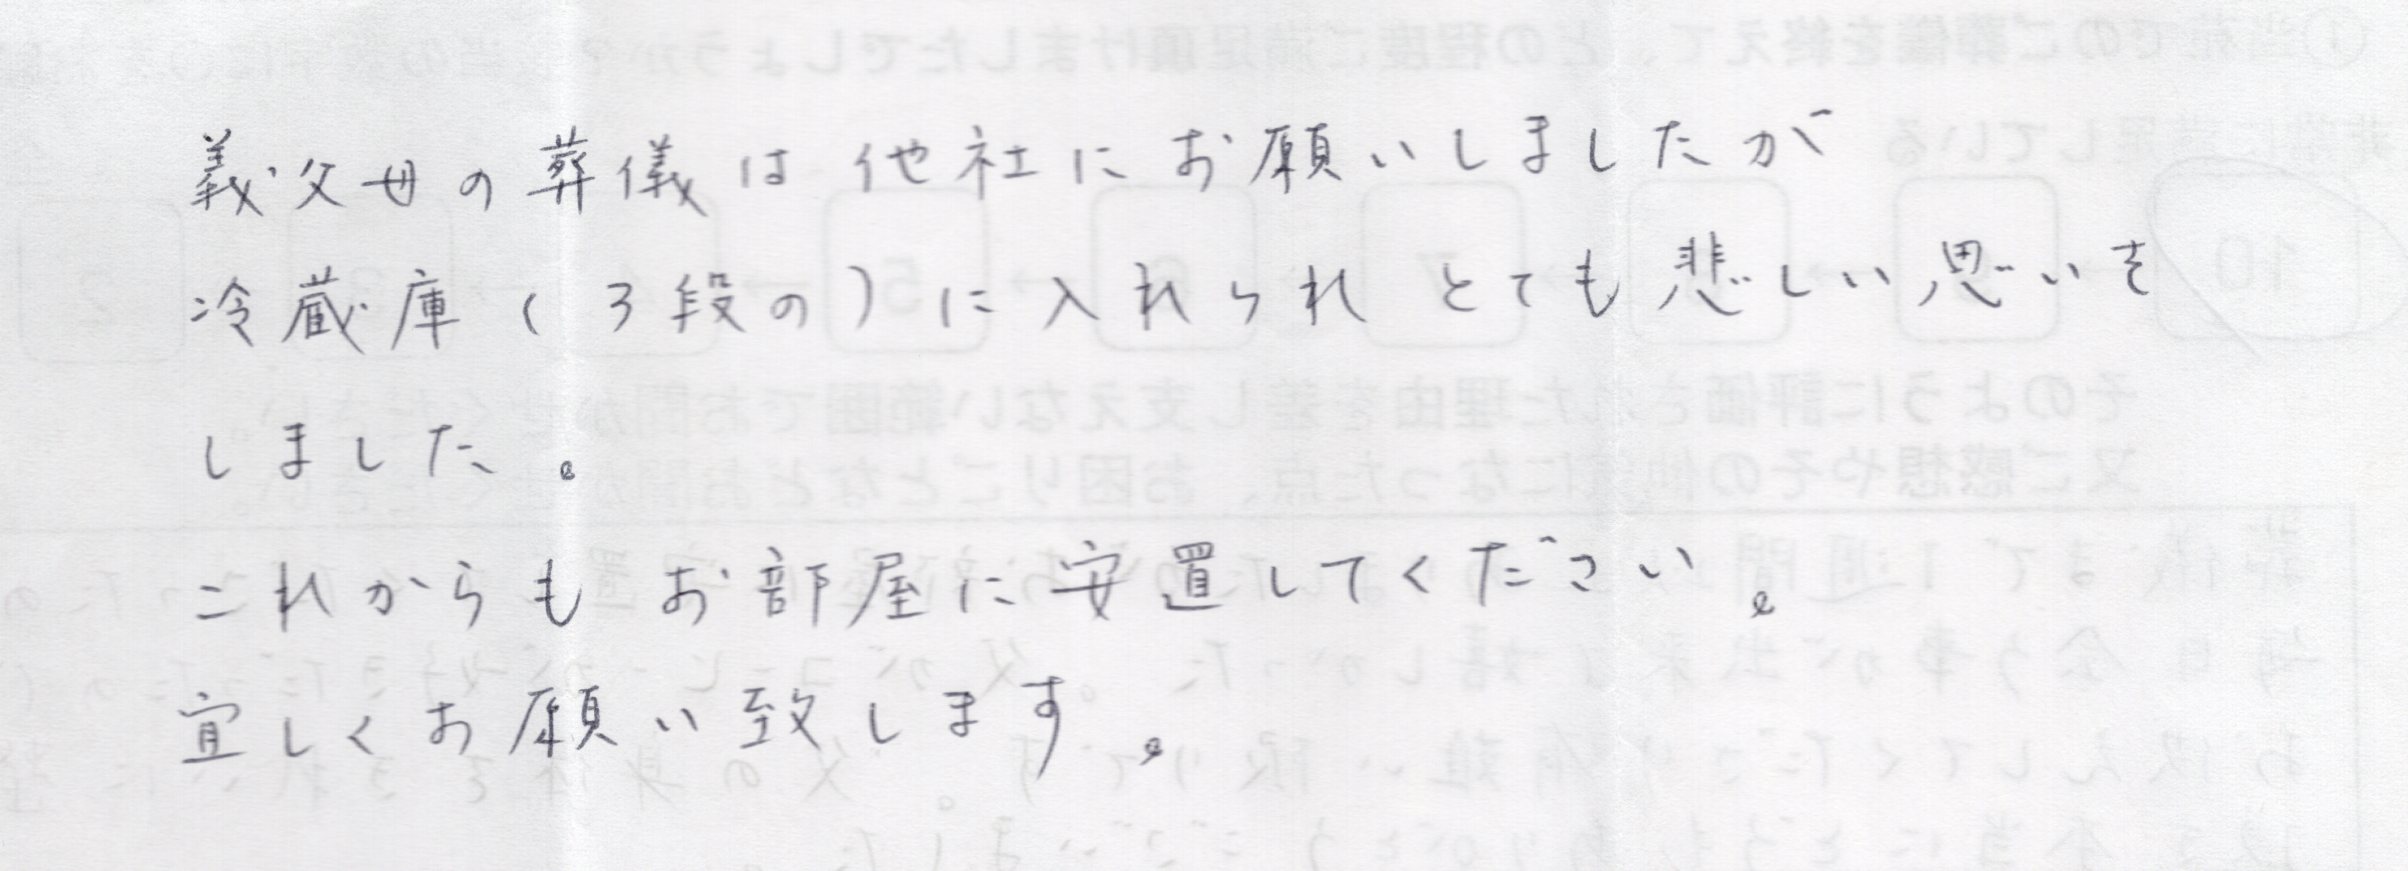 義父母の葬儀は他社にお願いしましたが
冷蔵庫(3段の)に入れられとても悲しい思いを
しました。
これからもお部屋に安置してください。
宜しくお願い致します。